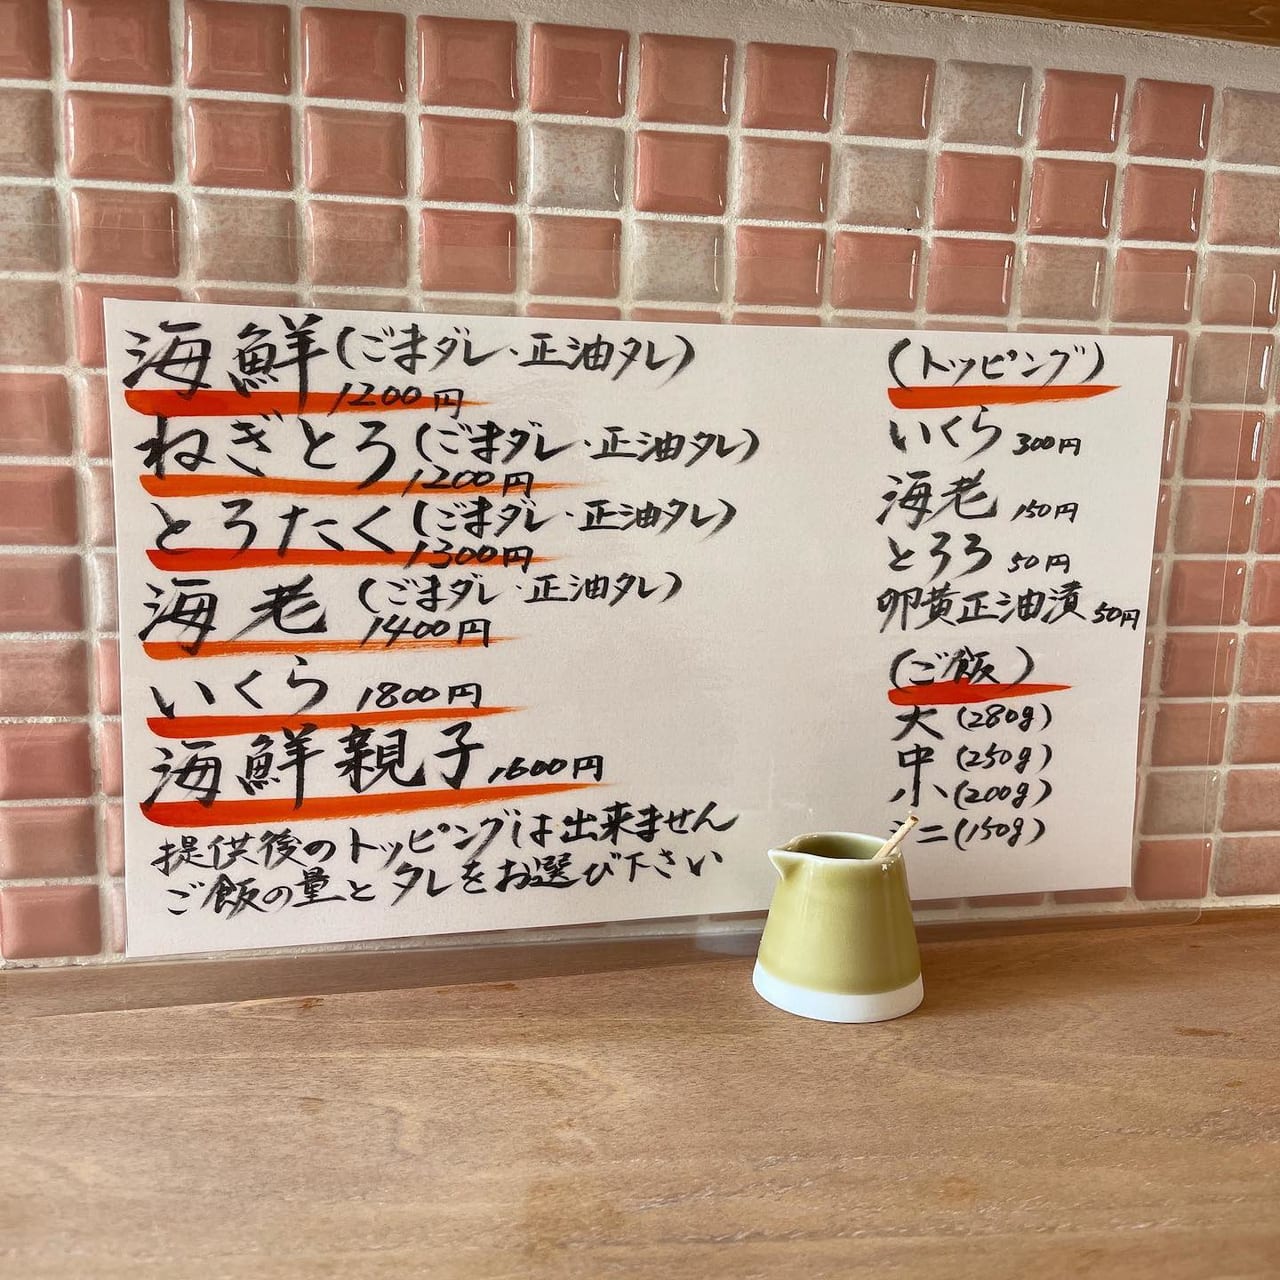 海鮮(ごまダレ・正油タレ)
1200円
ねぎとろ(ごまダレ・正油タレ)
1200円
とろたく(ごまダレ・正油タレ)
1300円
海老(ごまダレ・正油タレ)
1400円
いくら 1800円
海鮮親子 1600円
提供後のトッピングは出来ません
ご飯の量とタレをお選び下さい
(トッピング)
いくら 300円
海老 150円
とろろ 50円
卵黄正油漬 50円
(ご飯)
大(280g)
中(250g)
小(200g)
ミニ(150g)